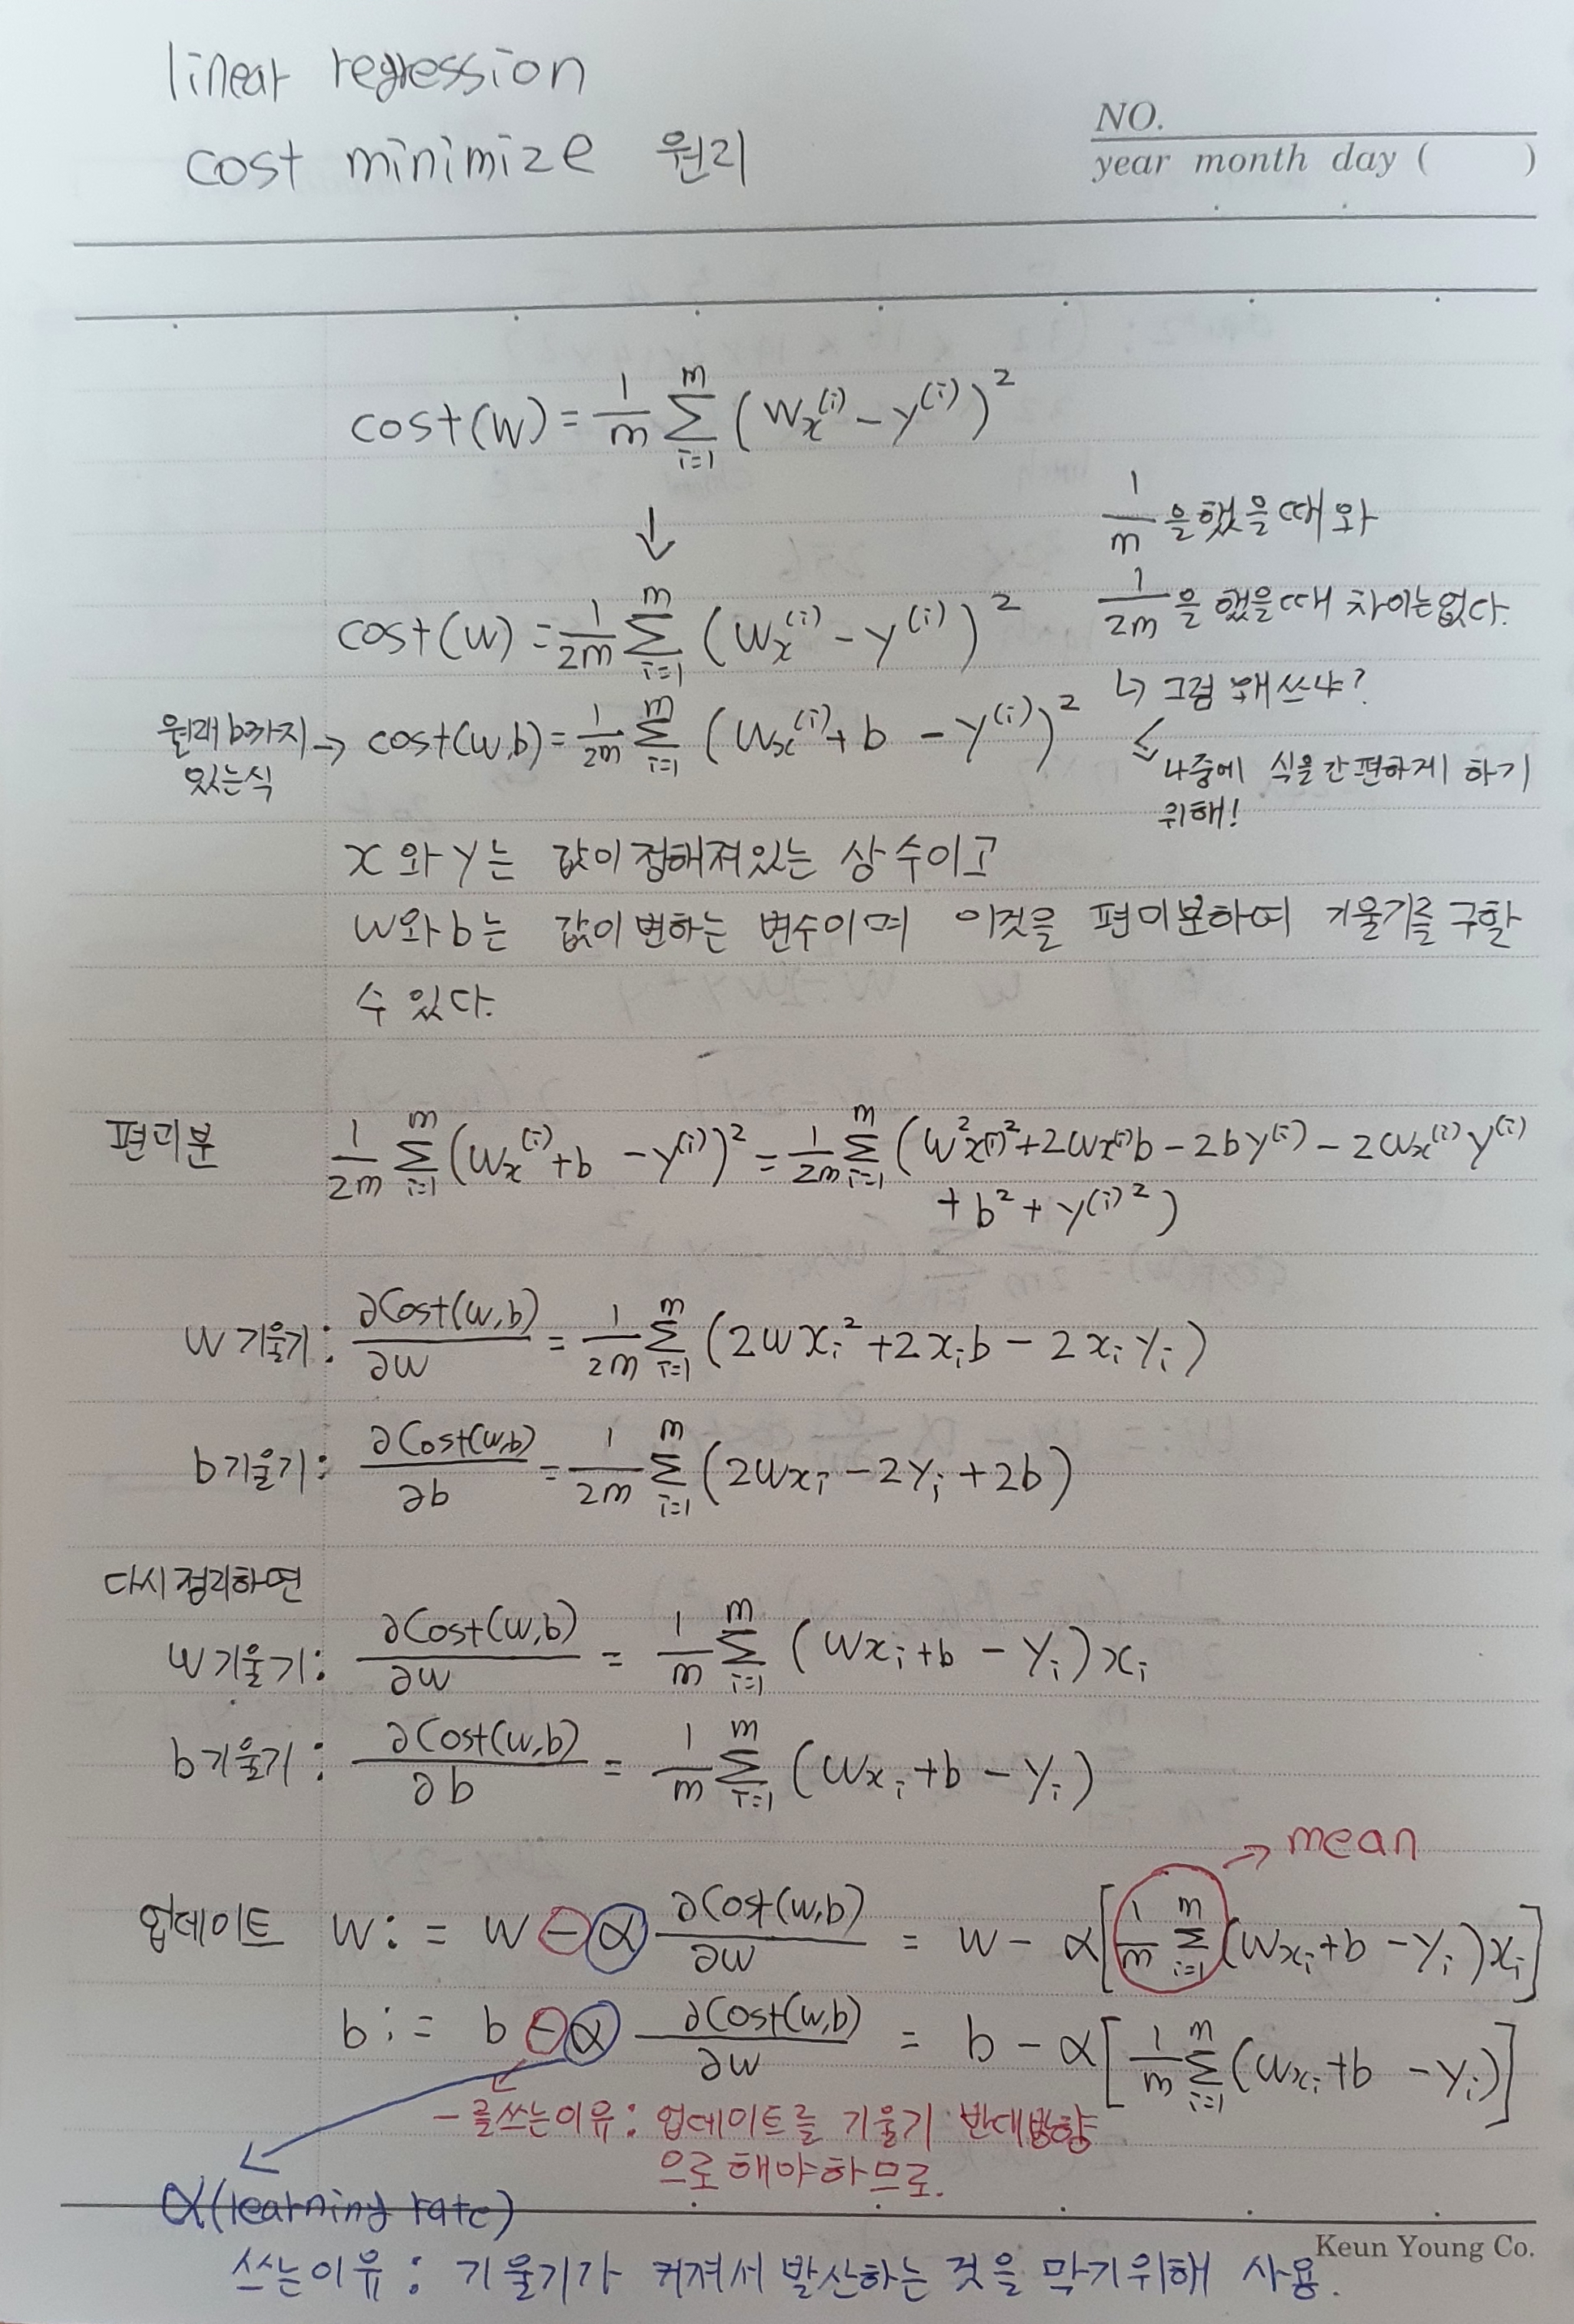 linear regression
cost minimize 원리
NO.
year month day ( )
cost(W) = 1/m ∑_{i=1}^{m} (Wx^{(i)} - y^{(i)})^2
↓
1/m 을 했을 때와
1/2m 을 했을 때 차이는 없다.
cost(W) = 1/2m ∑_{i=1}^{m} (Wx^{(i)} - y^{(i)})^2
↳ 그럼 왜 쓰냐?
원래 b까지 있는 식 → cost(W,b) = 1/2m ∑_{i=1}^{m} (Wx^{(i)} + b - y^{(i)})^2
나중에 식을 간편하게 하기
위해!
x와 y는 값이 정해져있는 상수이고
W와 b는 값이 변하는 변수이며 이것을 편미분하여 기울기를 구할
수 있다.
편미분 1/2m ∑_{i=1}^{m} (Wx^{(i)} + b - y^{(i)})^2 = 1/2m ∑_{i=1}^{m} (W^2x^{(i)2} + 2Wx^{(i)}b - 2by^{(i)} - 2Wx^{(i)}y^{(i)}
+ b^2 + y^{(i)2})
W기울기: ∂Cost(W,b)/∂W = 1/2m ∑_{i=1}^{m} (2Wx_i^2 + 2x_ib - 2x_iy_i)
b기울기: ∂Cost(W,b)/∂b = 1/2m ∑_{i=1}^{m} (2Wx_i - 2y_i + 2b)
다시 정리하면
W기울기: ∂Cost(W,b)/∂W = 1/m ∑_{i=1}^{m} (Wx_i + b - y_i)x_i
b기울기: ∂Cost(W,b)/∂b = 1/m ∑_{i=1}^{m} (Wx_i + b - y_i)
→ mean
업데이트 W := W - α ∂Cost(W,b)/∂W = W - α[1/m ∑_{i=1}^{m} (Wx_i + b - y_i)x_i]
b := b - α ∂Cost(W,b)/∂W = b - α[1/m ∑_{i=1}^{m} (Wx_i + b - y_i)]
-를 쓰는이유: 업데이트를 기울기 반대방향
으로 해야하므로.
α(learning rate)
Keun Young Co.
쓰는이유: 기울기가 커져서 발산하는 것을 막기위해 사용.